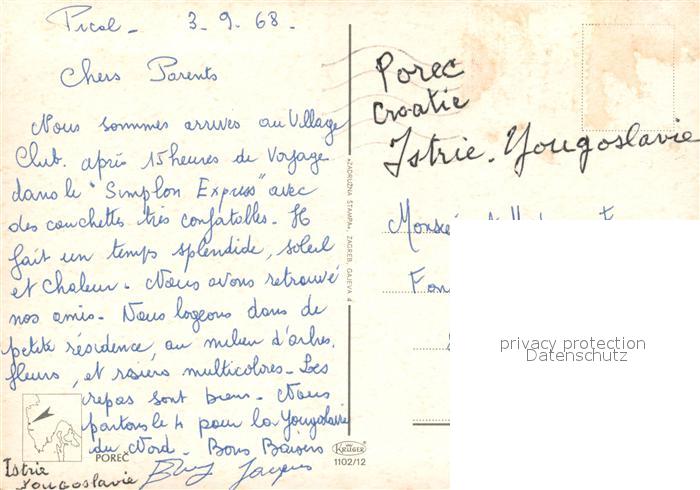 Pical - 3.9.68-
Chers Parents
Nous sommes arrives au Village
Club. après 15 heures de Voyage
dans le "Simplon Express" avec
des couchettes très confatolles. Il
fait un temps splendide, soleil
et chaleur - Nous avons retrouvé
nos amis - Nous logeons dans de
petite résidence, au milieu d'arbres,
fleurs, et rosiers multicolores - Les
repas sont biens - Nous
partons le 4 pour la Yougoslavie
du Nord - Bons Baisers
Jacques
POREČ
Istrie
Yougoslavie
»ZADRUŽNA ŠTAMPA«, ZAGREB, GAJEVA 4
KRÜGER
1102/12
Porec
Croatie
Istrie. Yougoslavie
privacy protection
Datenschutz